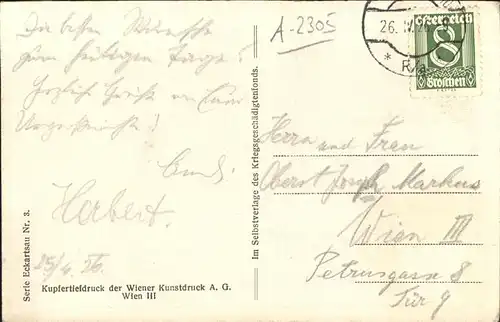 Die besten Wünsche
zum heutigen Tage!
Herzliche Grüße von Eurem
A-2305
26. IV. 26
* R/a
Österreich
8
Groschen
Herrn und Frau
Oberst Joseph Markus
Wien III
Petrusgasse 8
Tür 9
Habert.
25/4. 26.
Serie Eckartsau Nr. 3.
Kupfertiefdruck der Wiener Kunstdruck A. G.
Wien III
Im Selbstverlage des Kriegsgeschädigtenfonds.